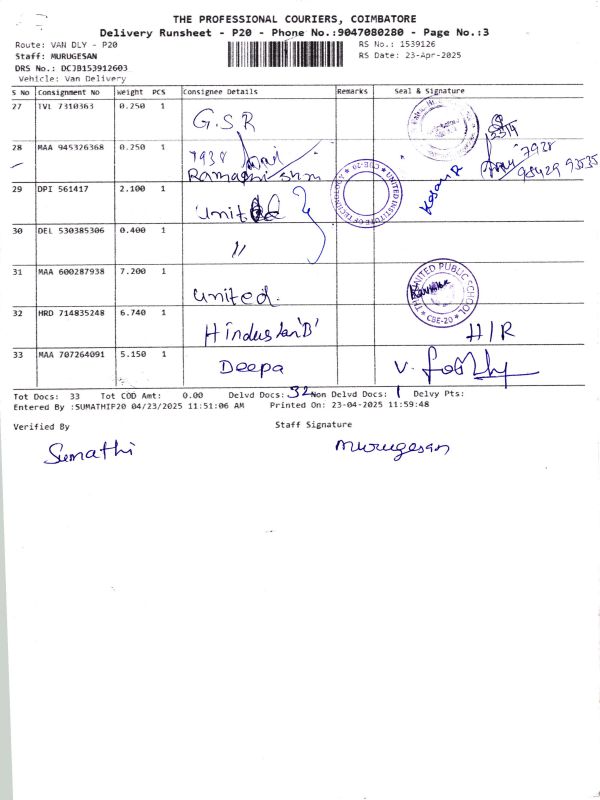 THE PROFESSIONAL COURIERS, COIMBATORE
Delivery Runsheet - P20 - Phone No.:9047080280 - Page No.:3
Route: VAN DLY - P20
RS No.: 1539126
Staff: MURUGESAN
RS Date: 23-Apr-2025
DRS No.: DCJB153912603
Vehicle: Van Delivery
S No Consignment No Weight PCS Consignee Details Remarks Seal & Signature
27 TVL 7310363 0.250 1 G.S.R
28 MAA 945326368 0.250 1 7938
7928
98429 93535
29 DPI 561417 2.100 1 United
UNITED INSTITUTE OF TECHNOLOGY CBE-20
30 DEL 530385306 0.400 1 "
31 MAA 600287938 7.200 1 United.
THE UNITED PUBLIC SCHOOL CBE-20
32 HRD 714835248 6.740 1 Hindustan 'B' H/R
33 MAA 707264091 5.150 1 Deepa
Tot Docs: 33 Tot COD Amt: 0.00 Delvd Docs: 32 Non Delvd Docs: 1 Delvy Pts:
Entered By :SUMATHIP20 04/23/2025 11:51:06 AM Printed On: 23-04-2025 11:59:48
Verified By Staff Signature
Sumathi Murugesan